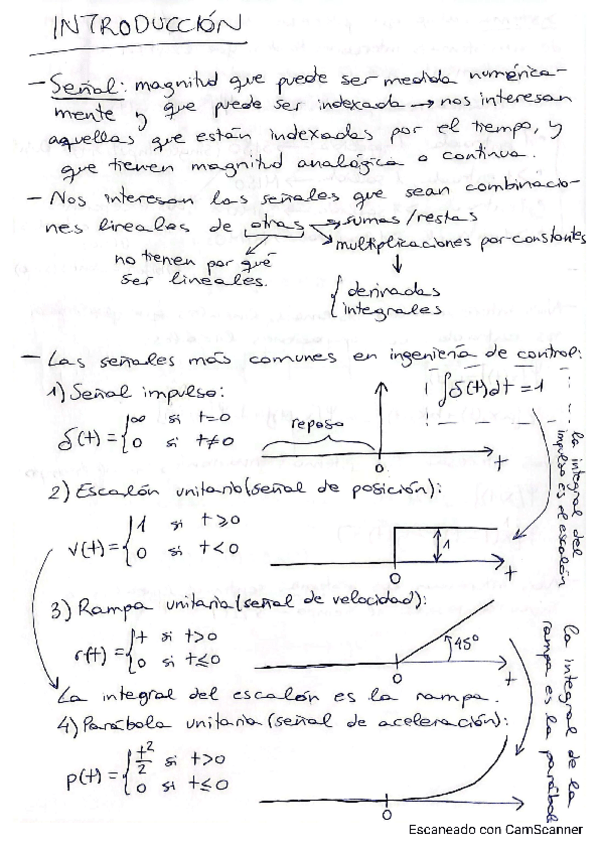 INTRODUCCIÓN
- Señal: magnitud que puede ser medida numérica-
mente y que puede ser indexada → nos interesan
aquellas que están indexadas por el tiempo, y
que tienen magnitud analógica o continua.
- Nos interesan las señales que sean combinacio-
nes lineales de otras → sumas/restas
→ multiplicaciones por constantes
no tienen por qué
ser lineales.
{ derivadas
integrales
- Las señales más comunes en ingeniería de control:
1) Señal impulso:
∫δ(t)dt = 1
δ(t) = { ∞ si t=0
0 si t≠0
reposo
0
t
la integral del
impulso es el escalón
2) Escalón unitario (señal de posición):
v(t) = { 1 si t≥0
0 si t<0
1
0
t
3) Rampa unitaria (señal de velocidad):
r(t) = { t si t>0
0 si t≤0
45º
0
t
La integral del escalón es la rampa.
la integral de la
rampa es la parábola
4) Parábola unitaria (señal de aceleración):
p(t) = { t²/2 si t>0
0 si t≤0
0
Escaneado con CamScanner